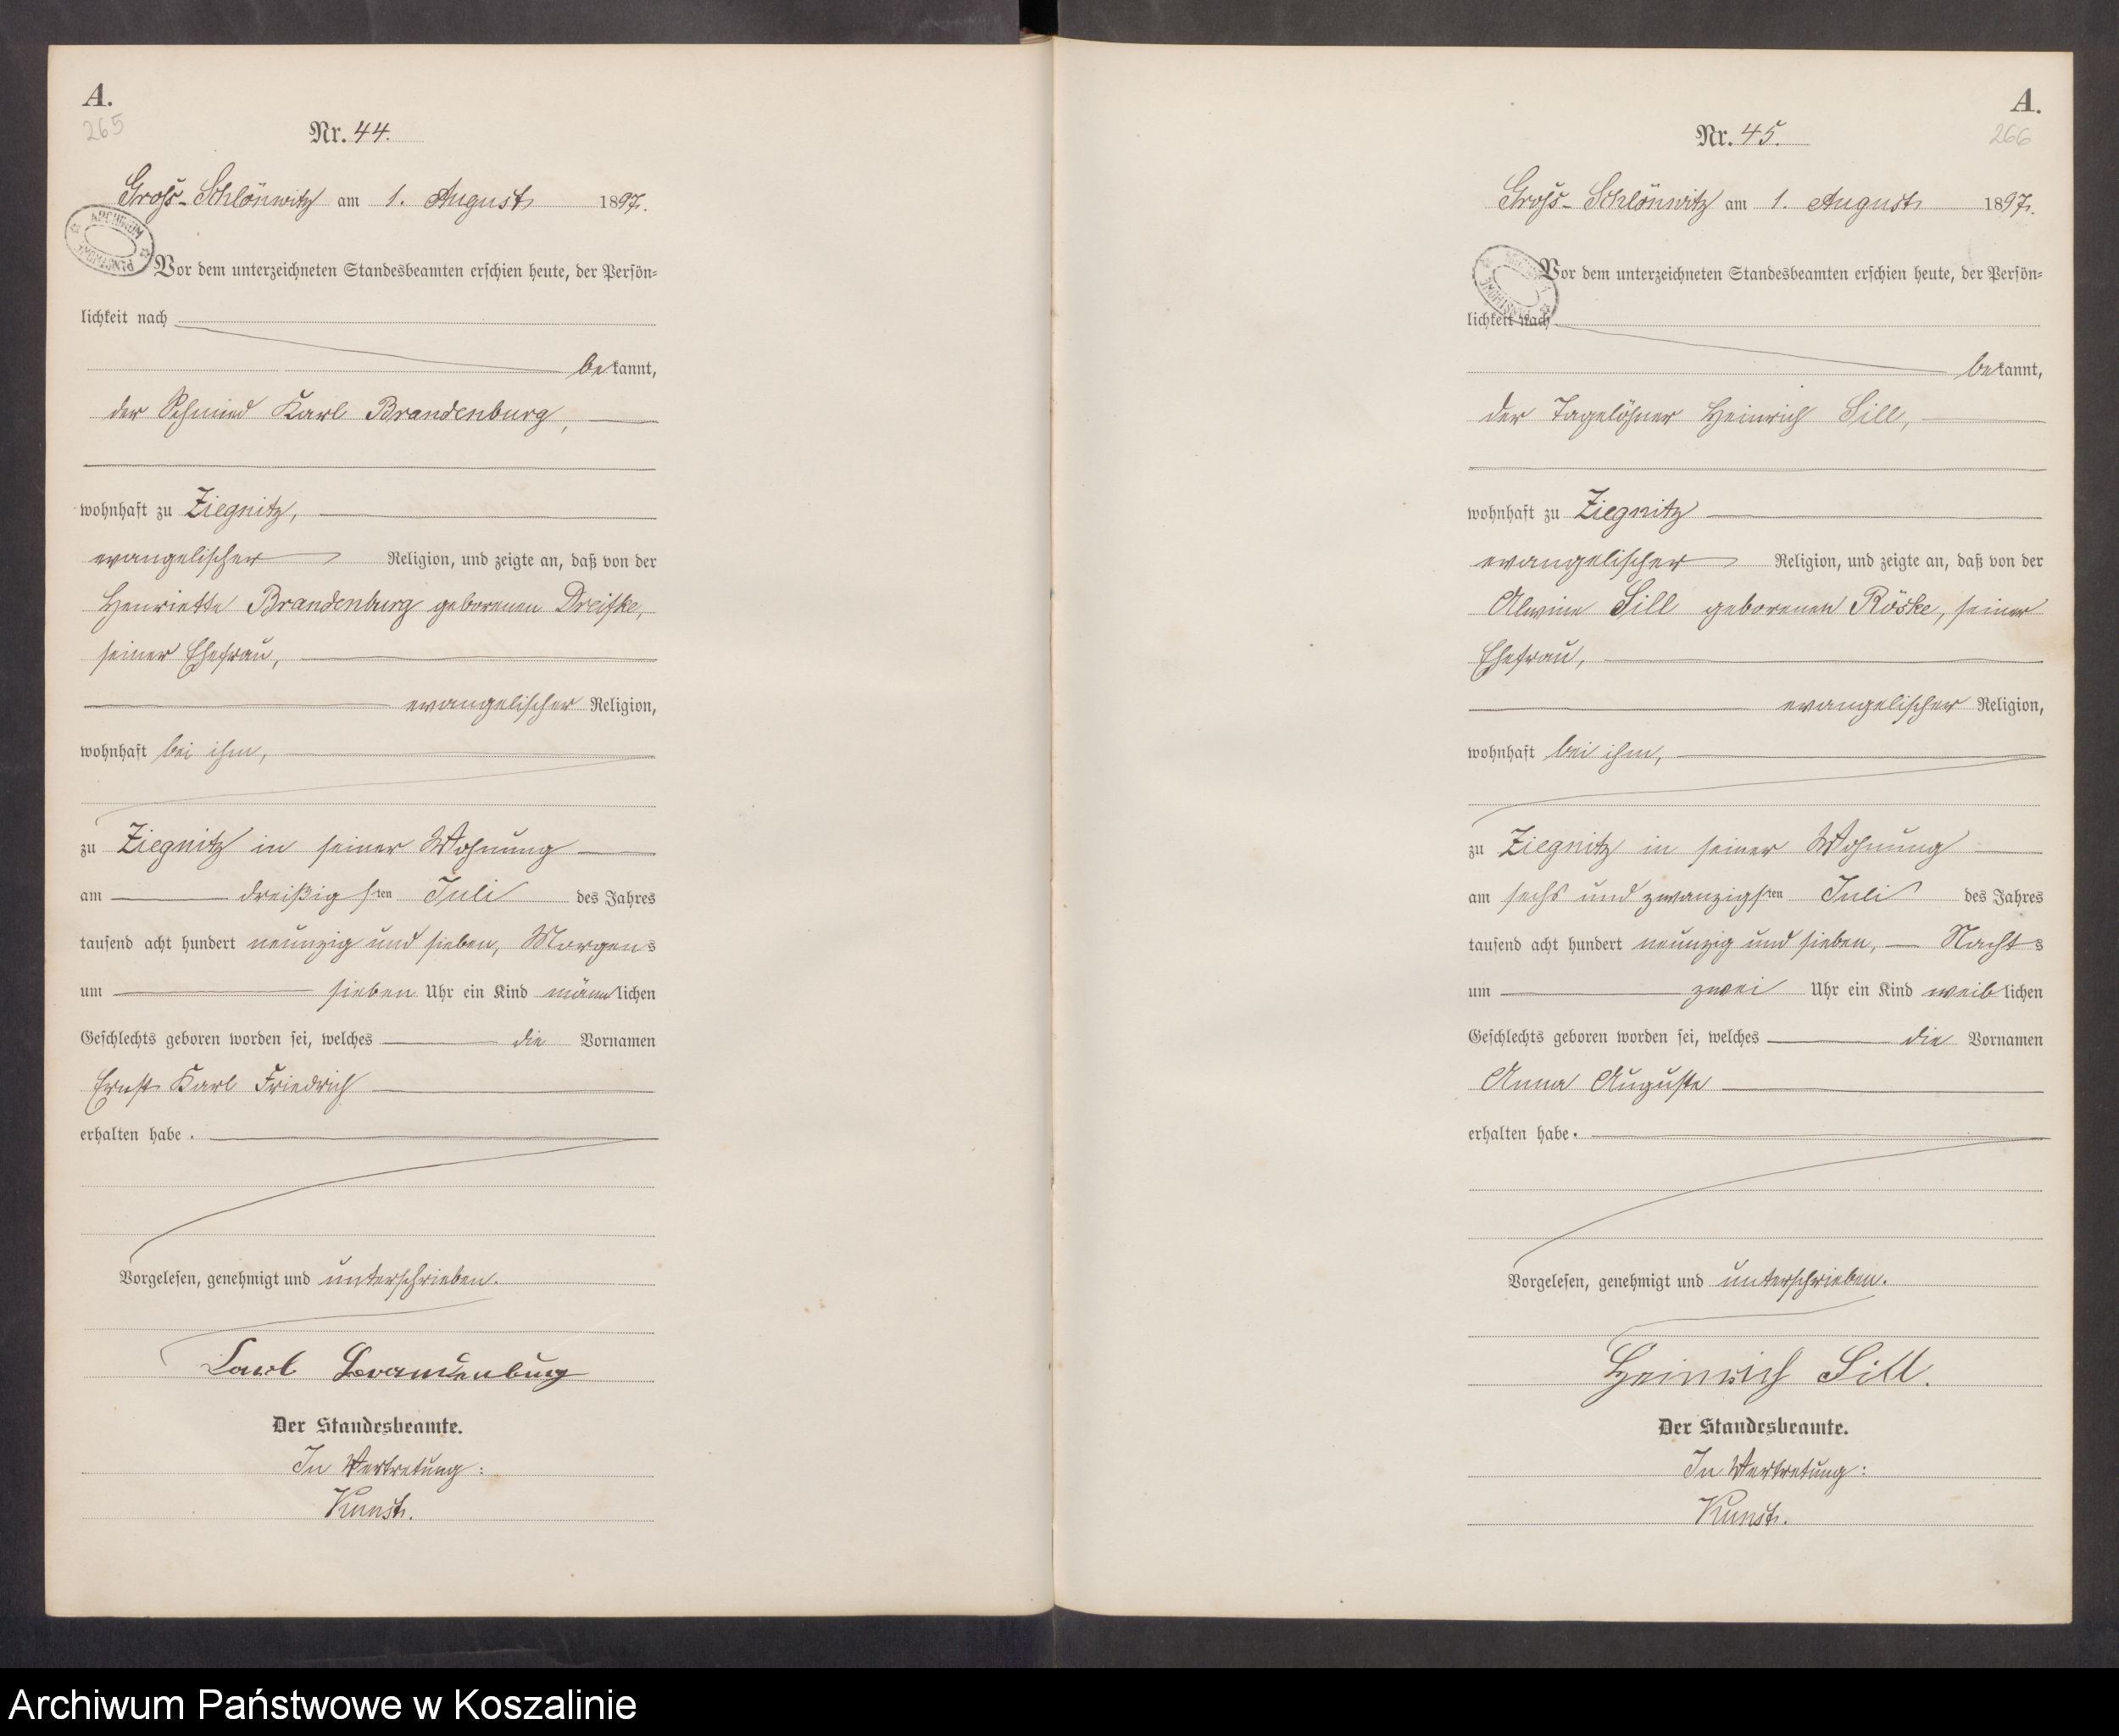 A.
265
Nr. 44.
Groß-Schlönwitz am 1. August 1897.
ARCHIWUM PAŃSTWOWE
Vor dem unterzeichneten Standesbeamten erschien heute, der Persön=
lichkeit nach
bekannt,
der Schmied Karl Brandenburg,
wohnhaft zu Ziegnitz,
evangelischer Religion, und zeigte an, daß von der
Henriette Brandenburg geborenen Dreifke,
seiner Ehefrau,
evangelischer Religion,
wohnhaft bei ihm,
zu Ziegnitz in seiner Wohnung
am dreißigsten Juli des Jahres
tausend acht hundert neunzig und sieben, Morgens
um sieben Uhr ein Kind männlichen
Geschlechts geboren worden sei, welches die Vornamen
Ernst Karl Friedrich
erhalten habe.
Vorgelesen, genehmigt und unterschrieben.
Carl Brandenburg
Der Standesbeamte.
In Vertretung:
Kunst.
A.
266
Nr. 45.
Groß-Schlönwitz am 1. August 1897.
Vor dem unterzeichneten Standesbeamten erschien heute, der Persön=
lichkeit nach
bekannt,
der Tagelöhner Heinrich Sill,
wohnhaft zu Ziegnitz
evangelischer Religion, und zeigte an, daß von der
Alwine Sill geborenen Röske, seiner
Ehefrau,
evangelischer Religion,
wohnhaft bei ihm,
zu Ziegnitz in seiner Wohnung
am sechs und zwanzigsten Juli des Jahres
tausend acht hundert neunzig und sieben, Nachts
um zwei Uhr ein Kind weiblichen
Geschlechts geboren worden sei, welches die Vornamen
Anna Auguste
erhalten habe.
Vorgelesen, genehmigt und unterschrieben.
Heinrich Sill.
Der Standesbeamte.
In Vertretung:
Kunst.
Archiwum Państwowe w Koszalinie